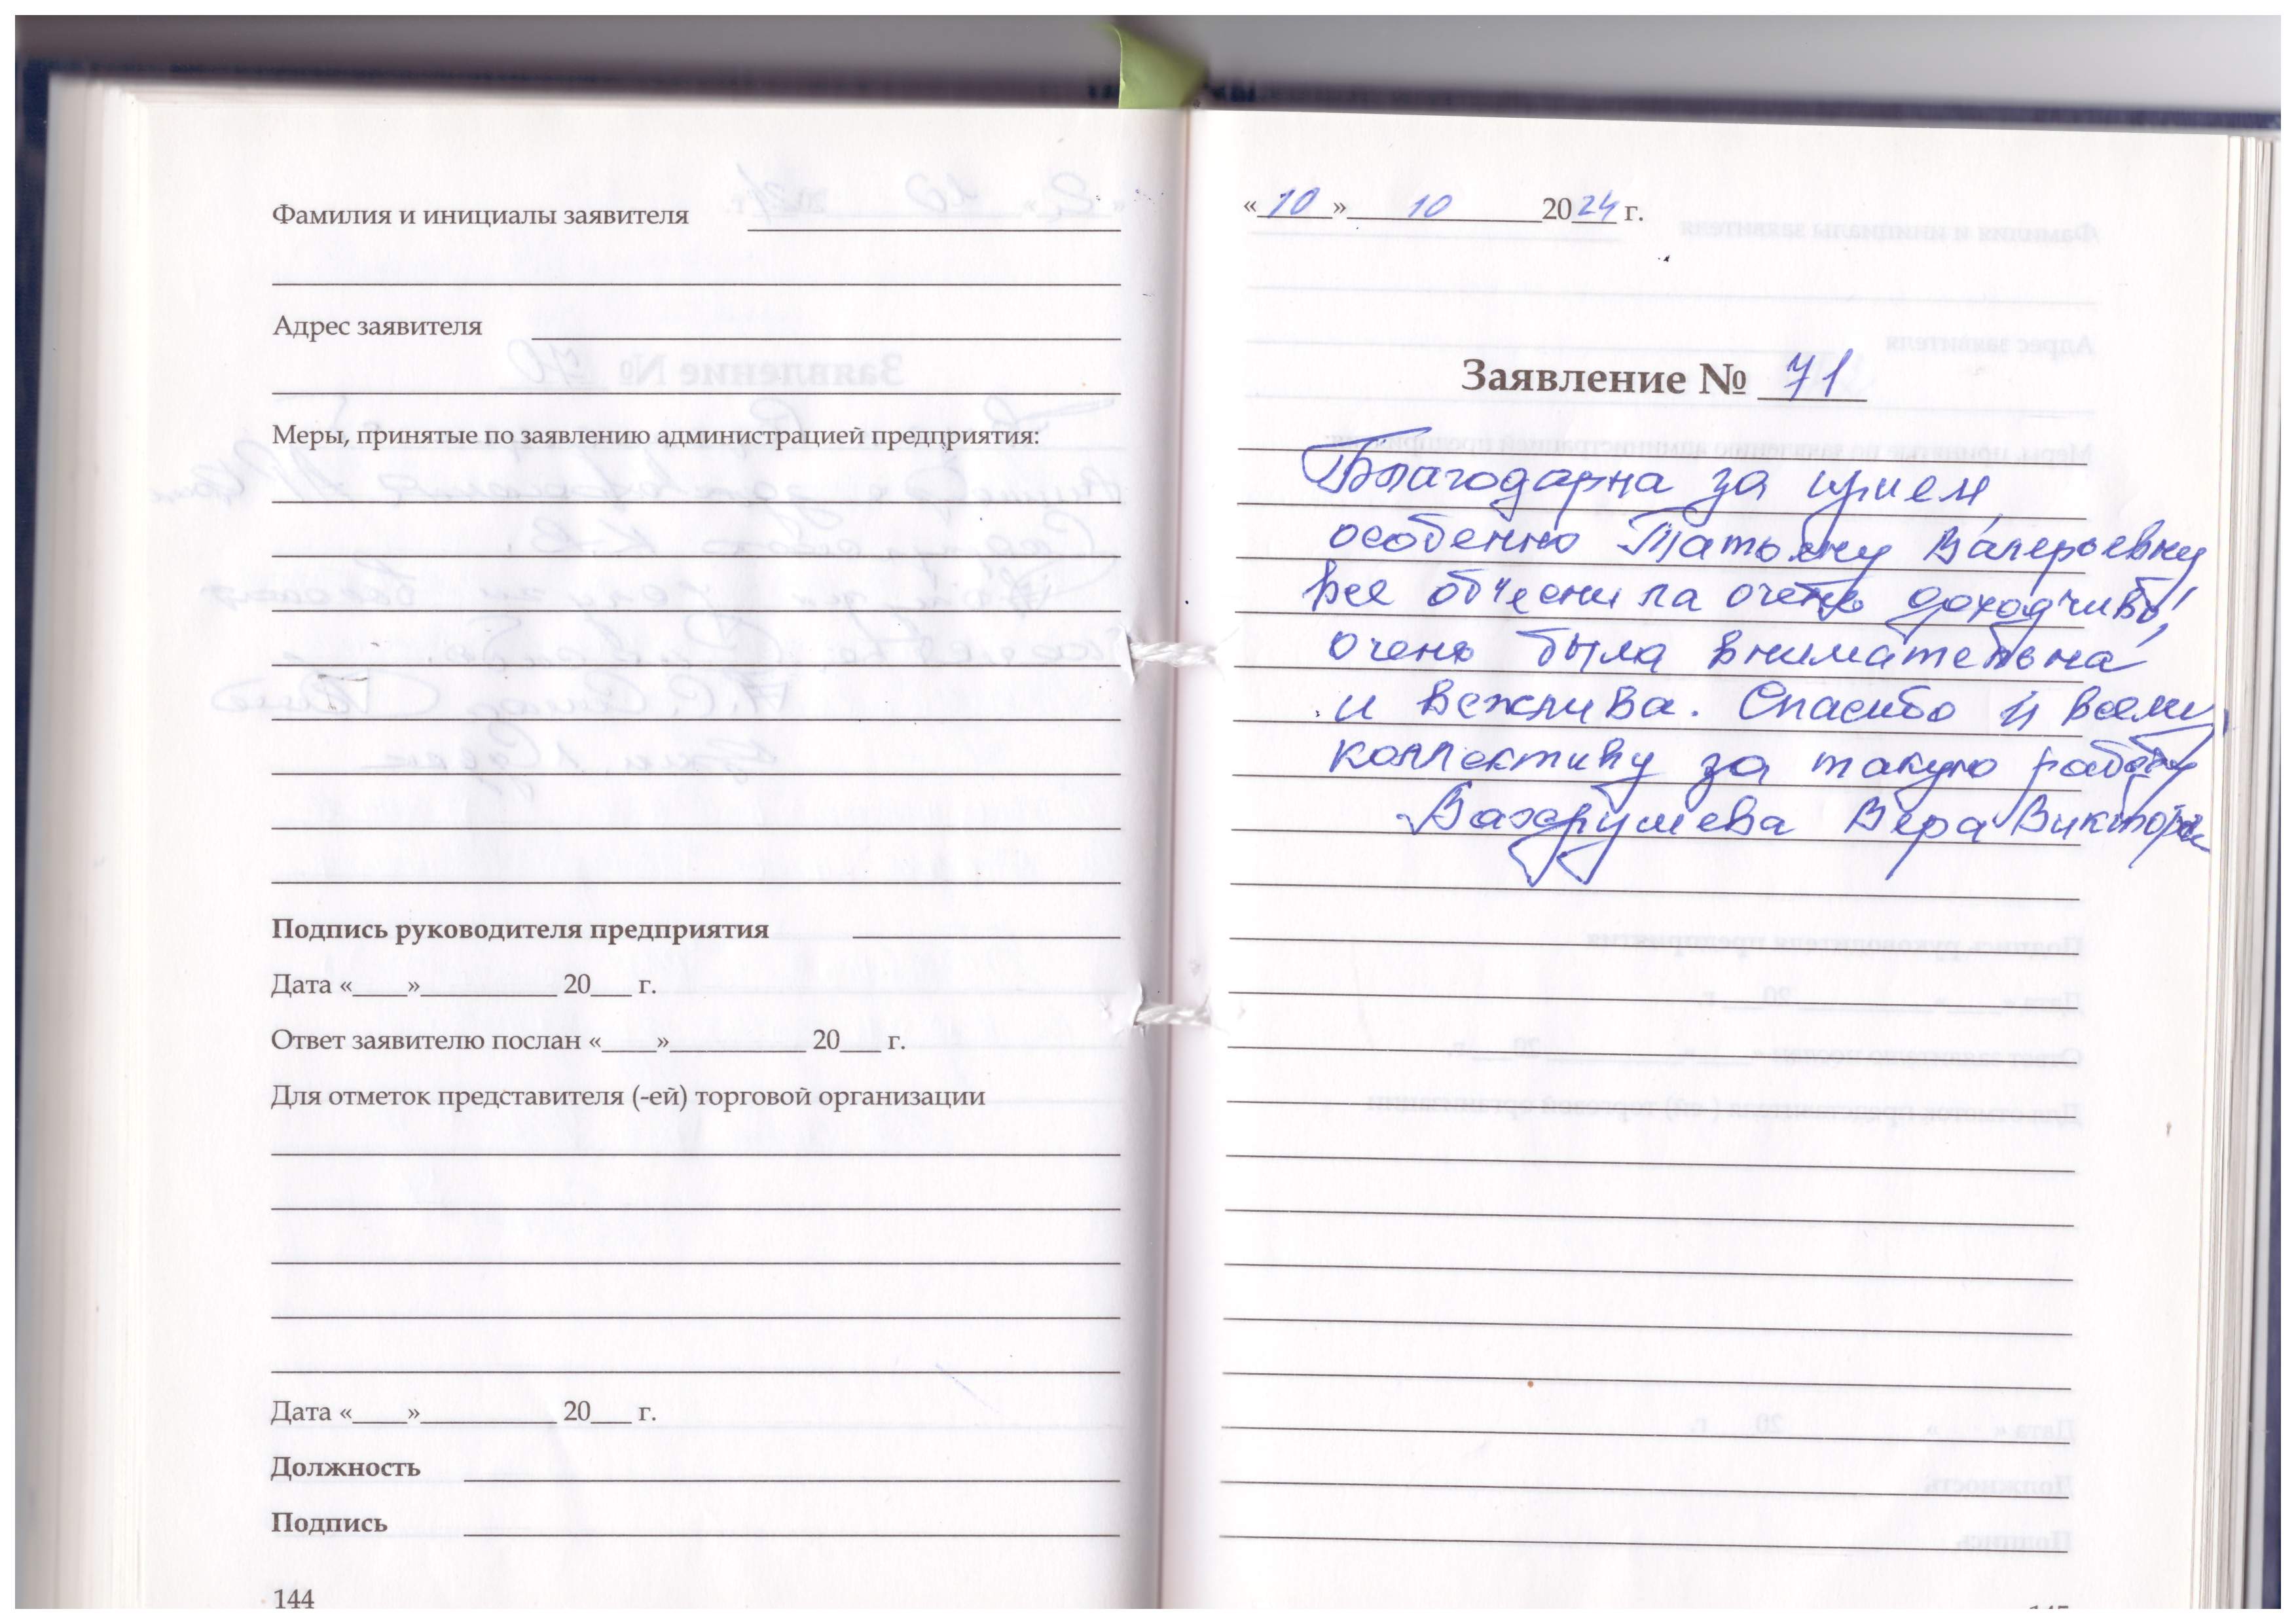 Фамилия и инициалы заявителя
Адрес заявителя
Меры, принятые по заявлению администрацией предприятия:
Подпись руководителя предприятия
Дата «____»__________ 20___ г.
Ответ заявителю послан «____»__________ 20___ г.
Для отметок представителя (-ей) торговой организации
Дата «____»__________ 20___ г.
Должность
Подпись
144
«10» 10 2024 г.
Заявление № 71
Благодарна за прием
особенно Татьяну Валерьевну
все об'еснила очень доходчиво!
очень была внимательна
и вежлива. Спасибо и всему
коллективу за такую работу
Вахрушева Вера